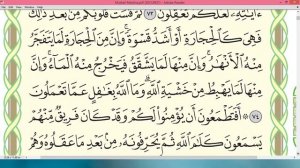 Mushaf Madina.pdf (SECURED) - Adobe Reader
ءَايَٰتِهِۦ لَعَلَّكُمْ تَعْقِلُونَ ٧٣ ثُمَّ قَسَتْ قُلُوبُكُم مِّنۢ بَعْدِ ذَٰلِكَ
فَهِىَ كَٱلْحِجَارَةِ أَوْ أَشَدُّ قَسْوَةً وَإِنَّ مِنَ ٱلْحِجَارَةِ لَمَا يَتَفَجَّرُ
مِنْهُ ٱلْأَنْهَٰرُ وَإِنَّ مِنْهَا لَمَا يَشَّقَّقُ فَيَخْرُجُ مِنْهُ ٱلْمَآءُ وَإِنَّ
مِنْهَا لَمَا يَهْبِطُ مِنْ خَشْيَةِ ٱللَّهِ وَمَا ٱللَّهُ بِغَٰفِلٍ عَمَّا تَعْمَلُونَ
٧٤ أَفَتَطْمَعُونَ أَن يُؤْمِنُوا۟ لَكُمْ وَقَدْ كَانَ فَرِيقٌ مِّنْهُمْ
يَسْمَعُونَ كَلَٰمَ ٱللَّهِ ثُمَّ يُحَرِّفُونَهُۥ مِنۢ بَعْدِ مَا عَقَلُوهُ وَهُمْ